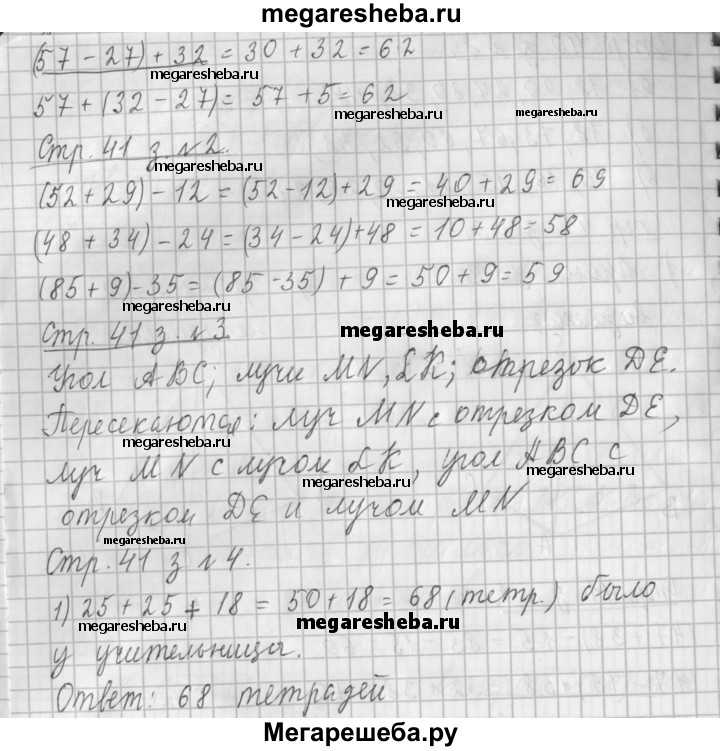 megaresheba.ru
(57 - 27) + 32 = 30 + 32 = 62
megaresheba.ru
57 + (32 - 27) = 57 + 5 = 62
megaresheba.ru megaresheba.ru
Стр. 41 з №2.
megaresheba.ru
(52 + 29) - 12 = (52 - 12) + 29 = 40 + 29 = 69
megaresheba.ru
(48 + 34) - 24 = (34 - 24) + 48 = 10 + 48 = 58
(85 + 9) - 35 = (85 - 35) + 9 = 50 + 9 = 59
megaresheba.ru
Стр. 41 з. №3
megaresheba.ru
Угол ABC; лучи MN, LK; отрезок DE.
Пересекаются: луч MN с отрезком DE,
megaresheba.ru megaresheba.ru
луч MN с лучом LK, угол ABC с
megaresheba.ru megaresheba.ru
отрезком DE и лучом MN
megaresheba.ru
Стр. 41 з №4.
1) 25 + 25 + 18 = 50 + 18 = 68 (тетр.) было
megaresheba.ru megaresheba.ru
у учительницы.
Ответ: 68 тетрадей
Мегарешеба.ру